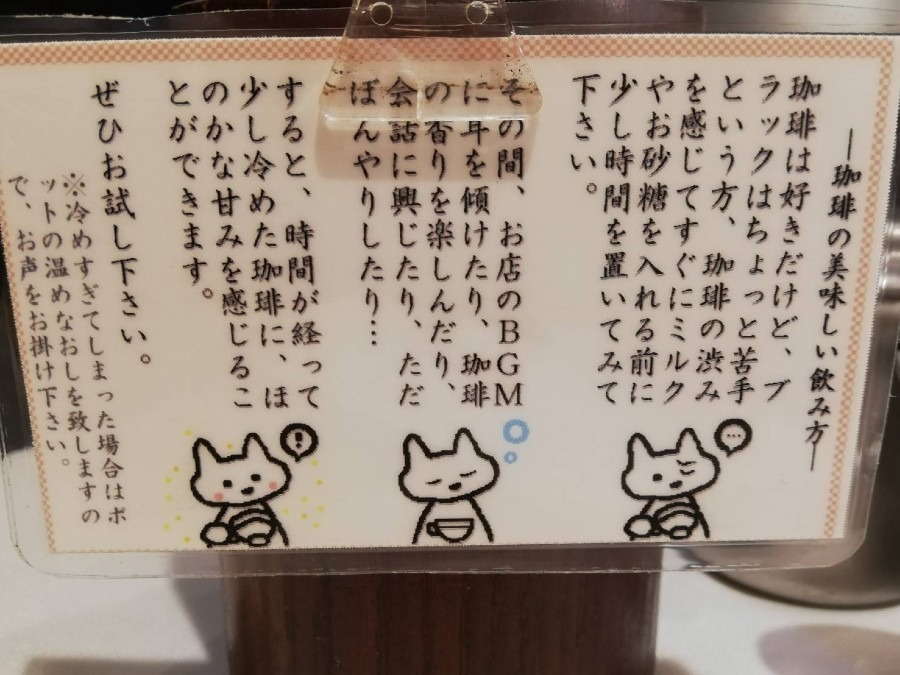 ―珈琲の美味しい飲み方―
珈琲は好きだけど、ブ
ラックはちょっと苦手
という方、珈琲の渋み
を感じてすぐにミルク
やお砂糖を入れる前に
少し時間を置いてみて
下さい。
その間、お店のBGM
に耳を傾けたり、珈琲
の香りを楽しんだり、
会話に興じたり、ただ
ぼんやりしたり…
すると、時間が経って
少し冷めた珈琲に、ほ
のかな甘みを感じるこ
とができます。
ぜひお試し下さい。
※冷めすぎてしまった場合はポ
ットの温めなおしを致しますの
で、お声をお掛け下さい。
…
!